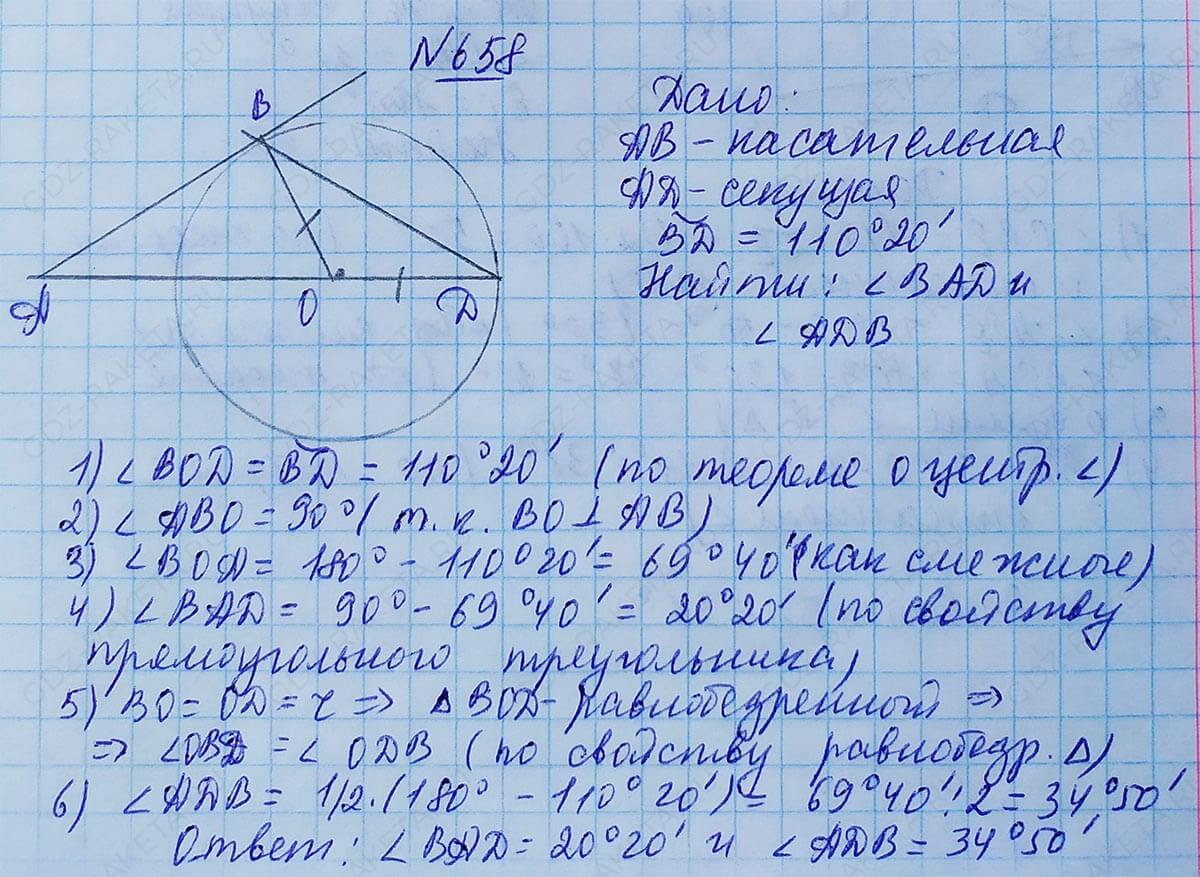 N658
Дано:
AB - касательная
AD - секущая
BD = 110°20'
Найти: ∠BAD и
∠ADB
B
A
O
D
1) ∠BOD = BD = 110°20' (по теореме о центр. ∠)
2) ∠ABO = 90° (т.к. BO ⊥ AB)
3) ∠BOA = 180° - 110°20' = 69°40' (как смежные)
4) ∠BAD = 90° - 69°40' = 20°20' (по свойству
прямоугольного треугольника)
5) BO = OD = r => △BOD - равнобедренный =>
=> ∠OBD = ∠ODB (по свойству равнобедр. △)
6) ∠ADB = 1/2 · (180° - 110°20') = 69°40' : 2 = 34°50'
Ответ: ∠BAD = 20°20' и ∠ADB = 34°50'